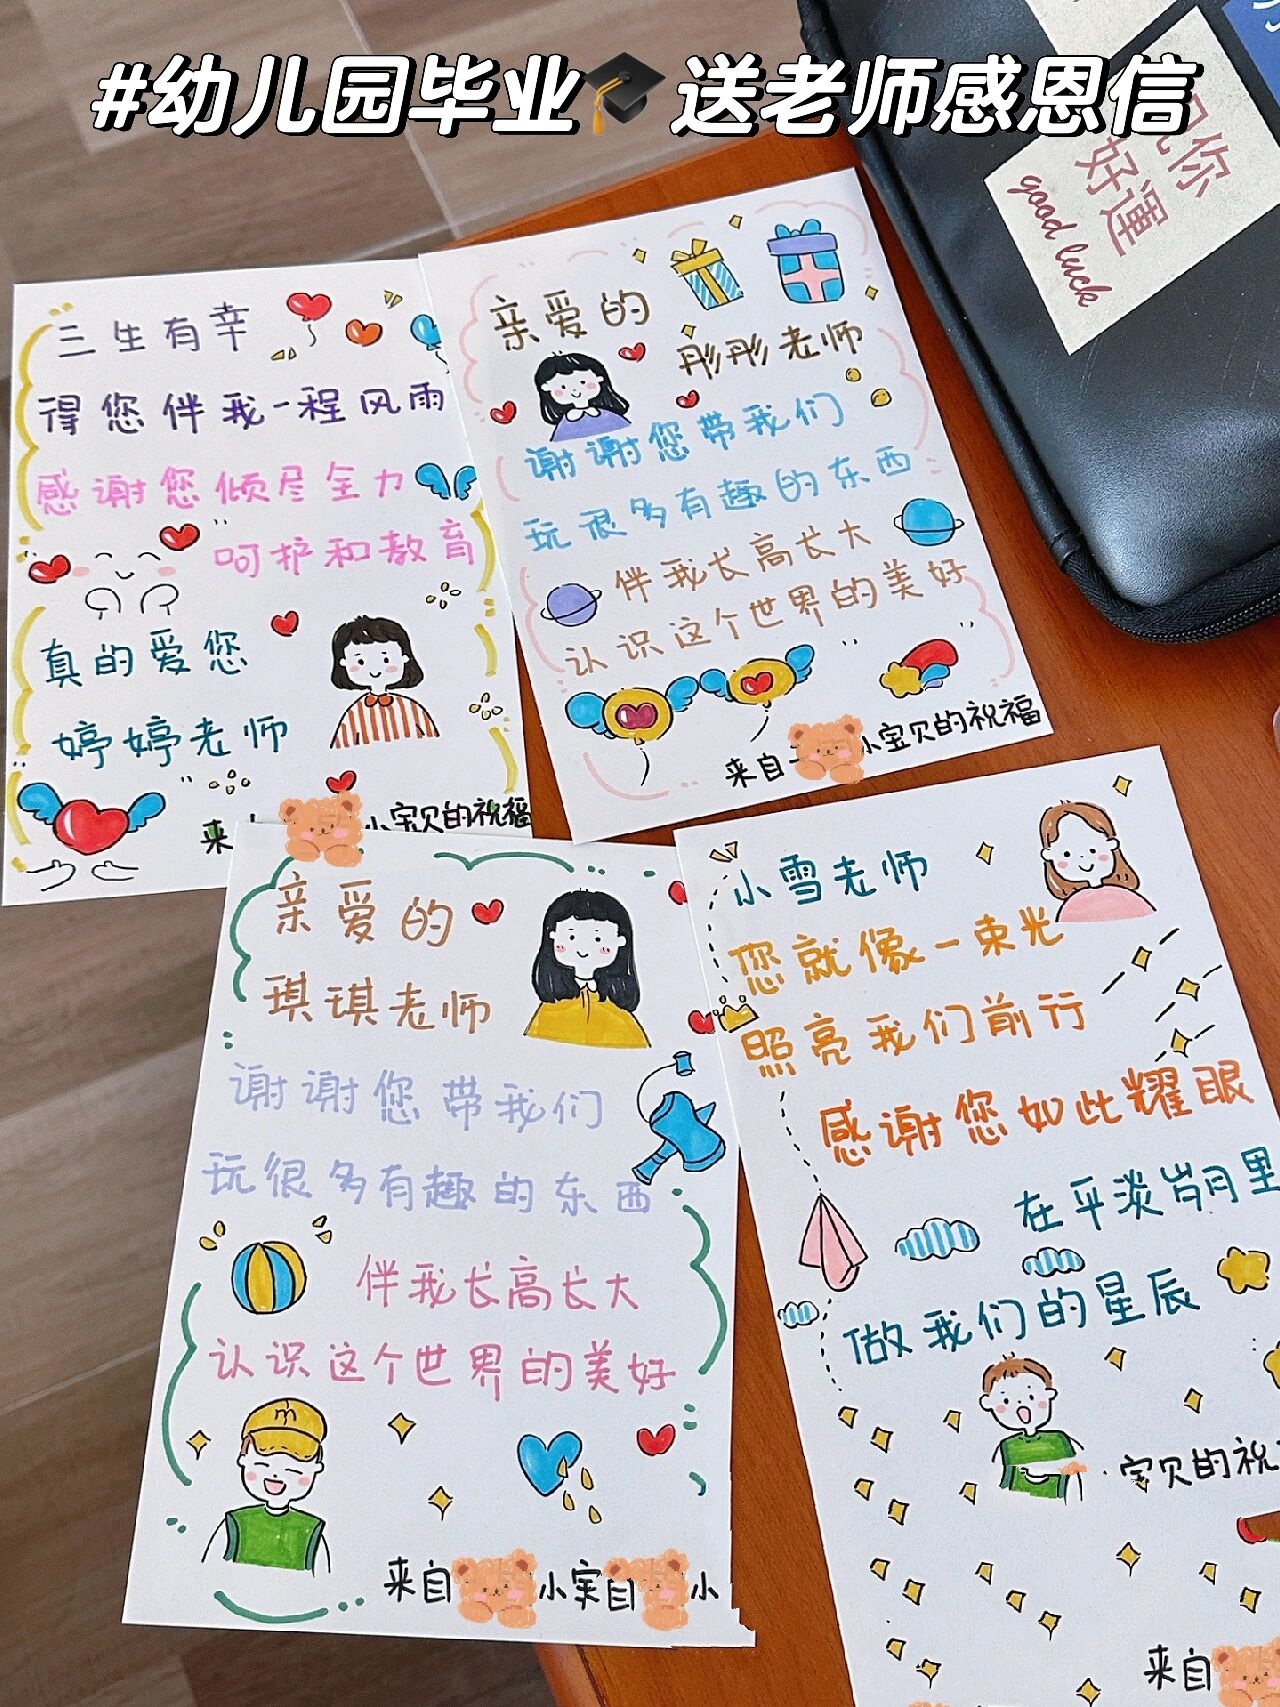 #幼儿园毕业🎓送老师感恩信
祝你
好运
good luck
三生有幸
得您伴我一程风雨
感谢您倾尽全力
呵护和教育
真的爱您
婷婷老师
来
小宝贝的祝福
亲爱的
彤彤老师
谢谢您带我们
玩很多有趣的东西
伴我长高长大
认识这个世界的美好
来自
小宝贝的祝福
亲爱的
琪琪老师
谢谢您带我们
玩很多有趣的东西
伴我长高长大
认识这个世界的美好
来自 小宝自 小
小雪老师
您就像一束光
照亮我们前行
感谢您如此耀眼
在平淡岁月里
做我们的星辰
宝贝的祝
来自